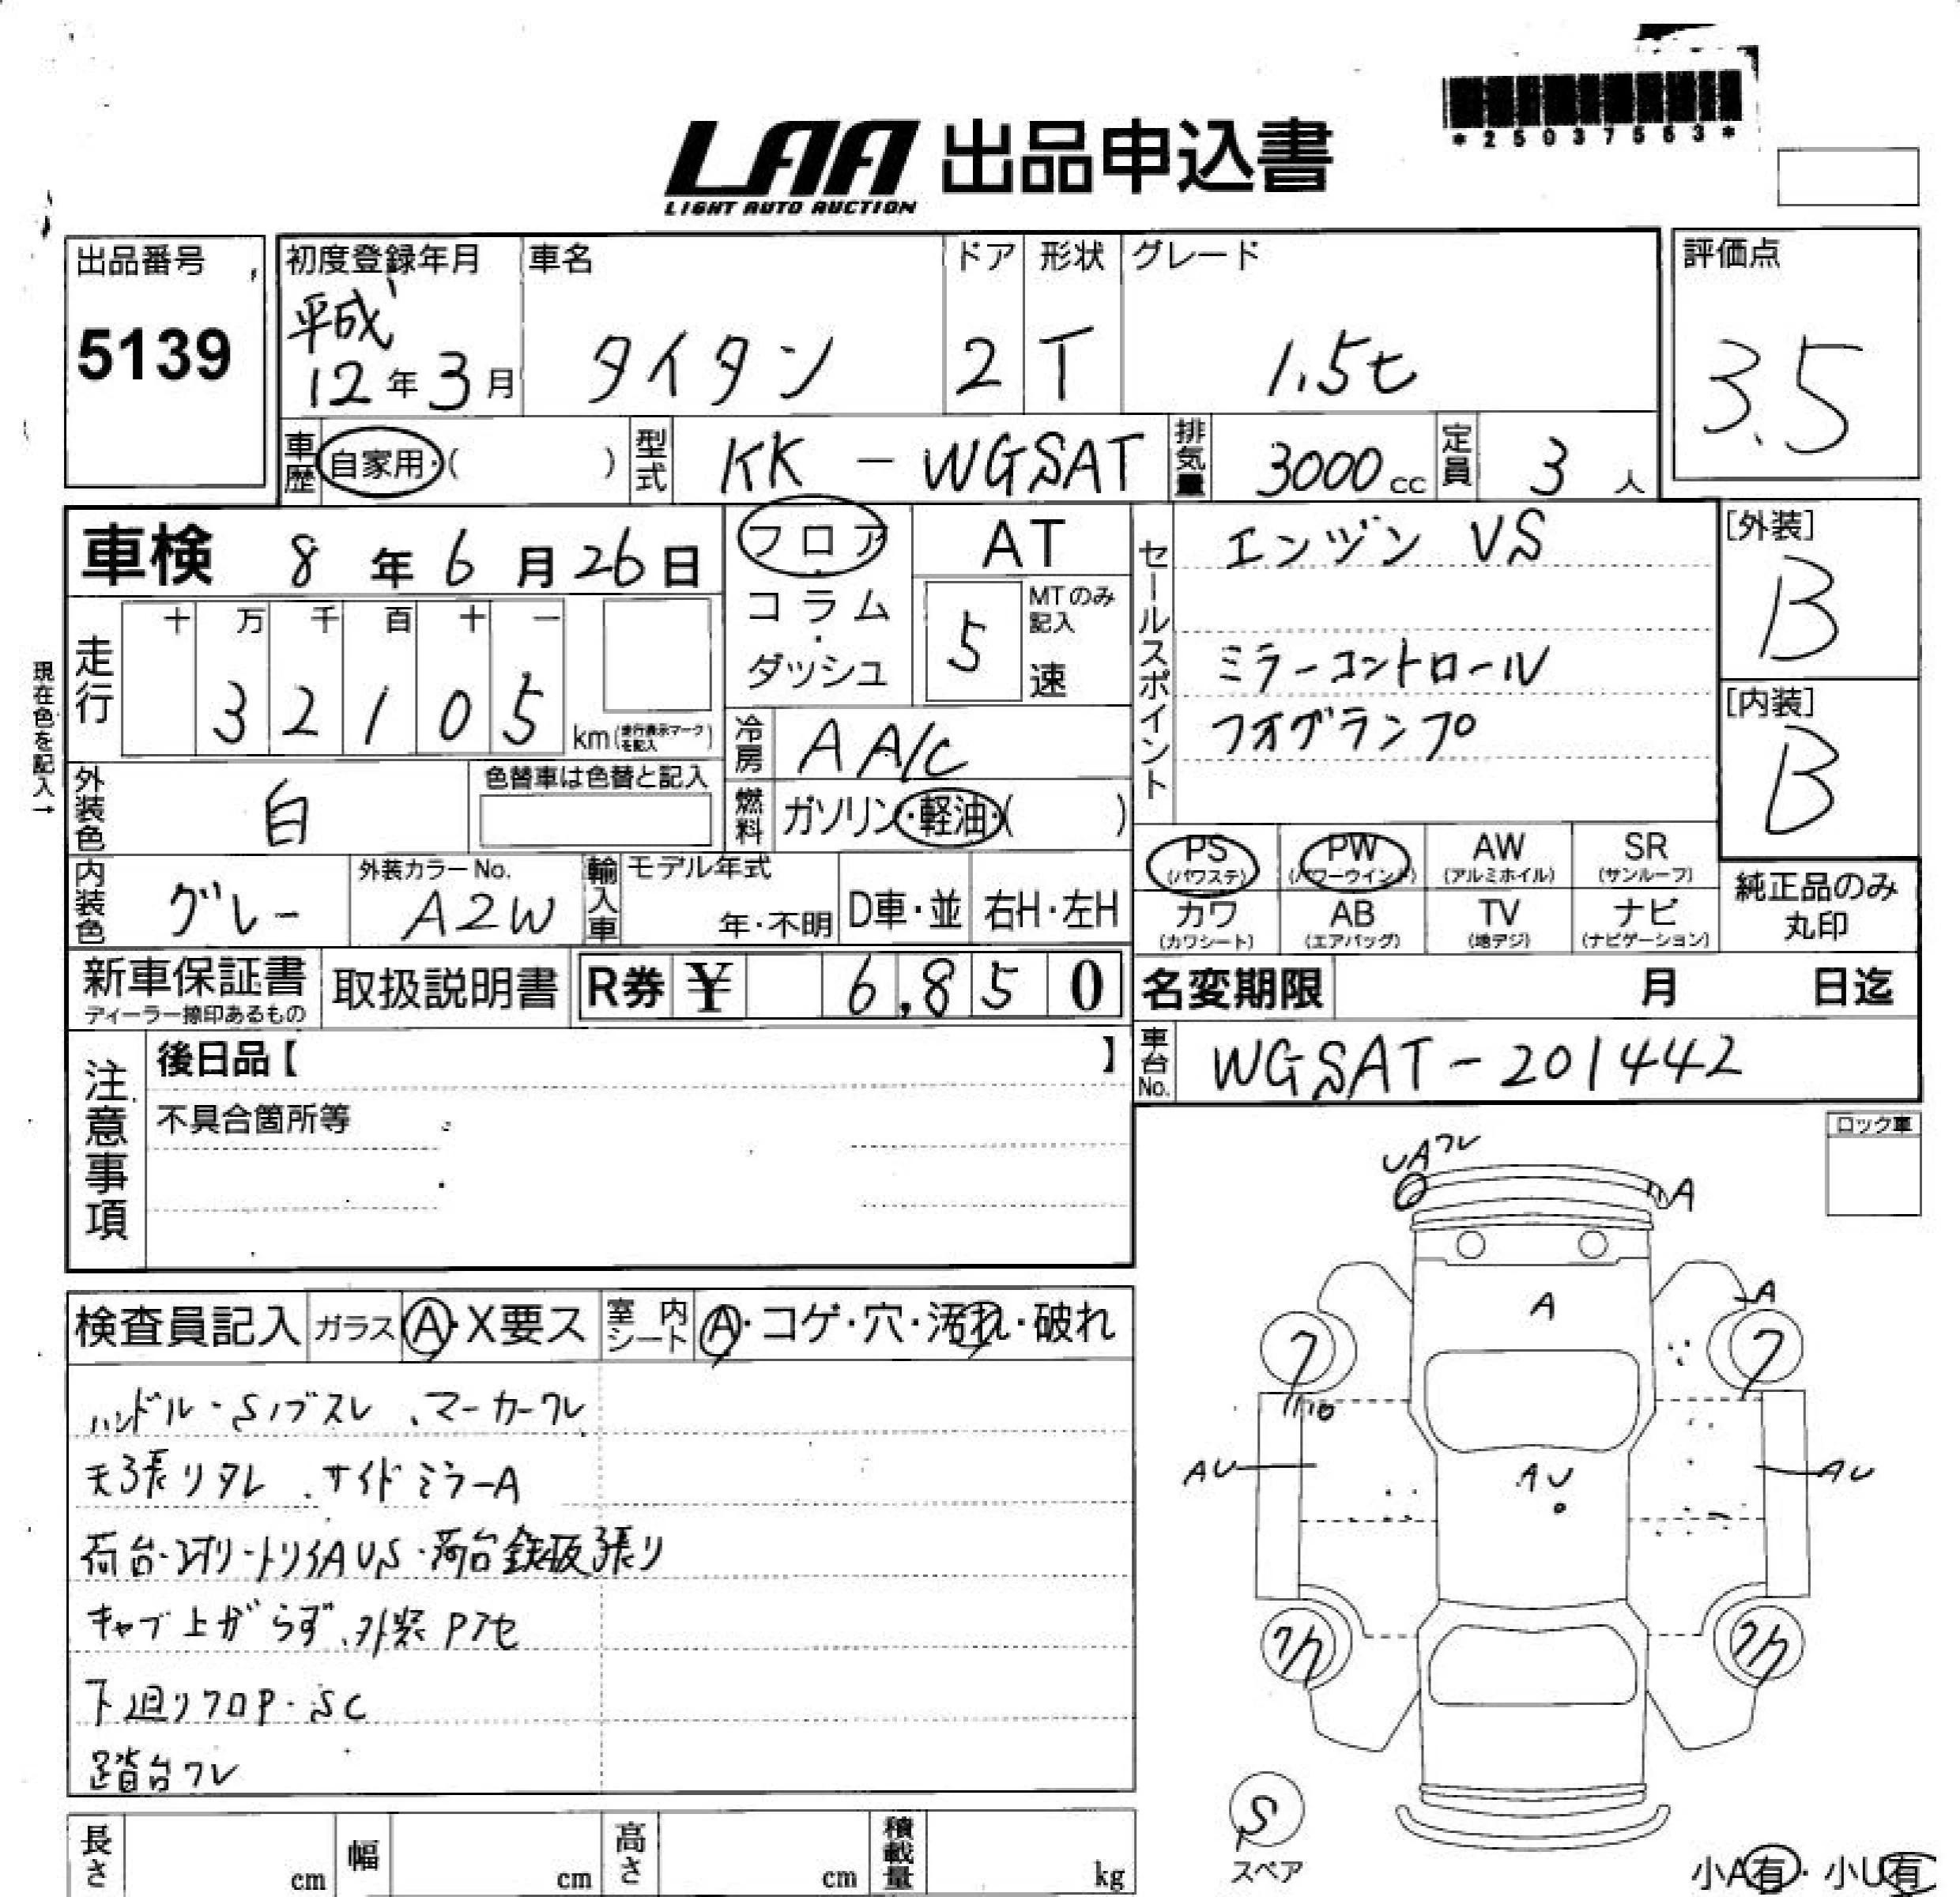 *25037563*
LAA 出品申込書
LIGHT AUTO AUCTION
出品番号
5139
初度登録年月
平成
12年3月
車名
タイタン
ドア
2
形状
T
グレード
1.5t
評価点
3.5
車歴
自家用・( )
型式
KK - WGSAT
排気量
3000cc
定員
3人
車検 8年6月26日
フロア・コラム・ダッシュ
AT
5
MTのみ記入
速
セールスポイント
エンジン VS
ミラーコントロール
フオグランプ
[外装]
B
[内装]
B
現在色を記入→
走行
十 万 千 百 十 一
3 2 1 0 5
km(走行表示マークを記入)
冷房
A A/C
外装色
白
色替車は色替と記入
燃料
ガソリン・軽油・( )
PS (パワステ)
PW (パワーウインド)
AW (アルミホイル)
SR (サンルーフ)
カワ (カワシート)
AB (エアバッグ)
TV (地デジ)
ナビ (ナビゲーション)
純正品のみ丸印
内装色
グレー
外装カラーNo.
A2W
輸入車
モデル年式
年・不明
D車・並
右H・左H
新車保証書
ディーラー捺印あるもの
取扱説明書
R券 ¥ 6,850
名変期限 月 日迄
車台No.
WGSAT-201442
注意事項
後日品【 】
不具合箇所等
ロック車
UAワレ
A
A
A
AU
AU
AU
検査員記入
ガラス A・X要ス
室内シート A・コゲ・穴・汚れ・破れ
ハンドル・Sノブスレ、マーカーワレ
天張りタレ、サイドミラーA
荷台鉄板張り
キャブ上がらず、外装Pアセ
下廻りフロP・SC
踏台ワレ
S
スペア
小A有・小U有
長さ cm
幅 cm
高さ cm
積載量 kg